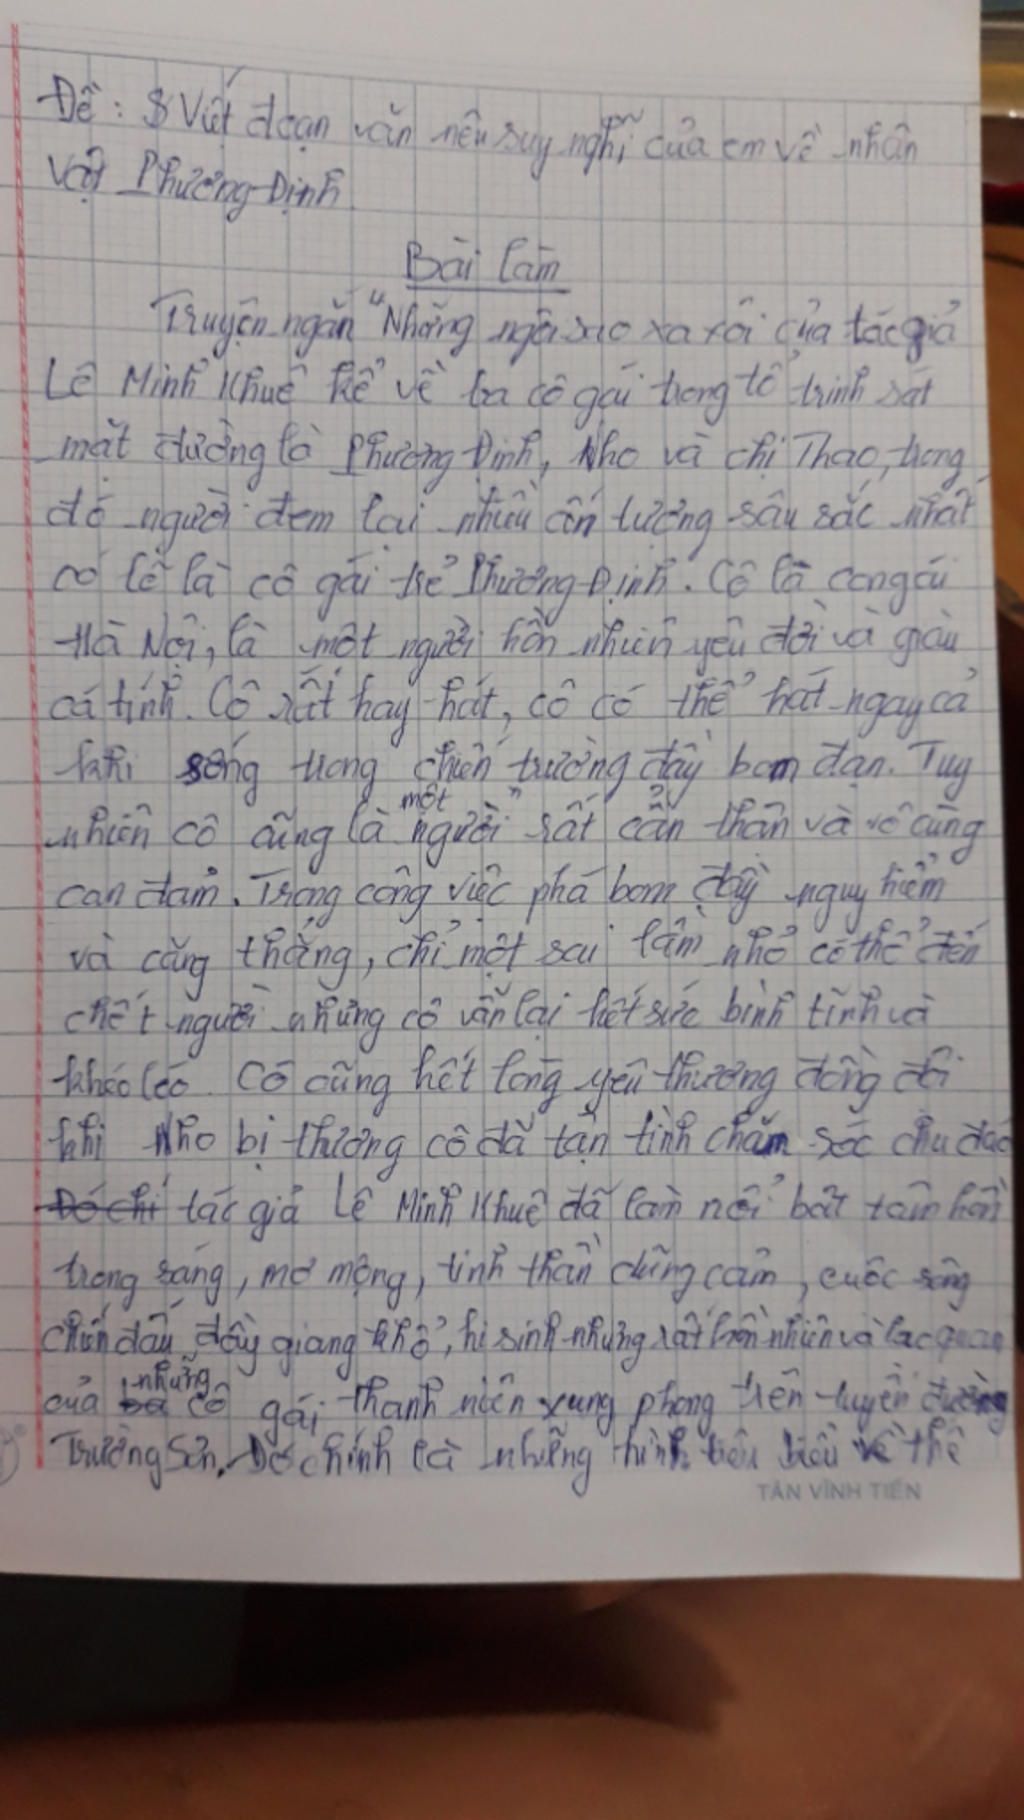 Đề: Viết đoạn văn nêu suy nghĩ của em về nhân
vật Phương Định
Bài làm
Truyện ngắn "Những ngôi sao xa xôi của tác giả
Lê Minh Khuê kể về ba cô gái trong tổ trinh sát
mặt đường là Phương Định, Nho và chị Thao, trong
đó người đem lại nhiều ấn tượng sâu sắc nhất
có lẽ là cô gái trẻ Phương Định. Cô là con gái
Hà Nội, là một người hồn nhiên yêu đời và giàu
cá tính. Cô rất hay hát, cô có thể hát ngay cả
khi sống trong chiến trường đầy bom đạn. Tuy
nhiên cô cũng là một người rất cẩn thân và vô cùng
can đảm. Trong công việc phá bom đầy nguy hiểm
và căng thẳng, chỉ một sai lầm nhỏ có thể đến
chết người nhưng cô vẫn lại hết sức bình tĩnh và
khéo léo. Cô cũng hết lòng yêu thương đồng đội
khi Nho bị thương cô đã tận tình chăm sóc chu đáo
Đó chí tác giả Lê Minh Khuê đã làm nổi bật tâm hồn
trong sáng, mơ mộng, tinh thần dũng cảm, cuộc sống
chiến đấu đầy giang khổ, hi sinh nhưng rất hồn nhiên và lạc quan
của ba những cô gái thanh niên xung phong trên tuyến đường
Trường Sơn. Đó chính là những hình tiêu biểu về thế
TÂN VĨNH TIẾN